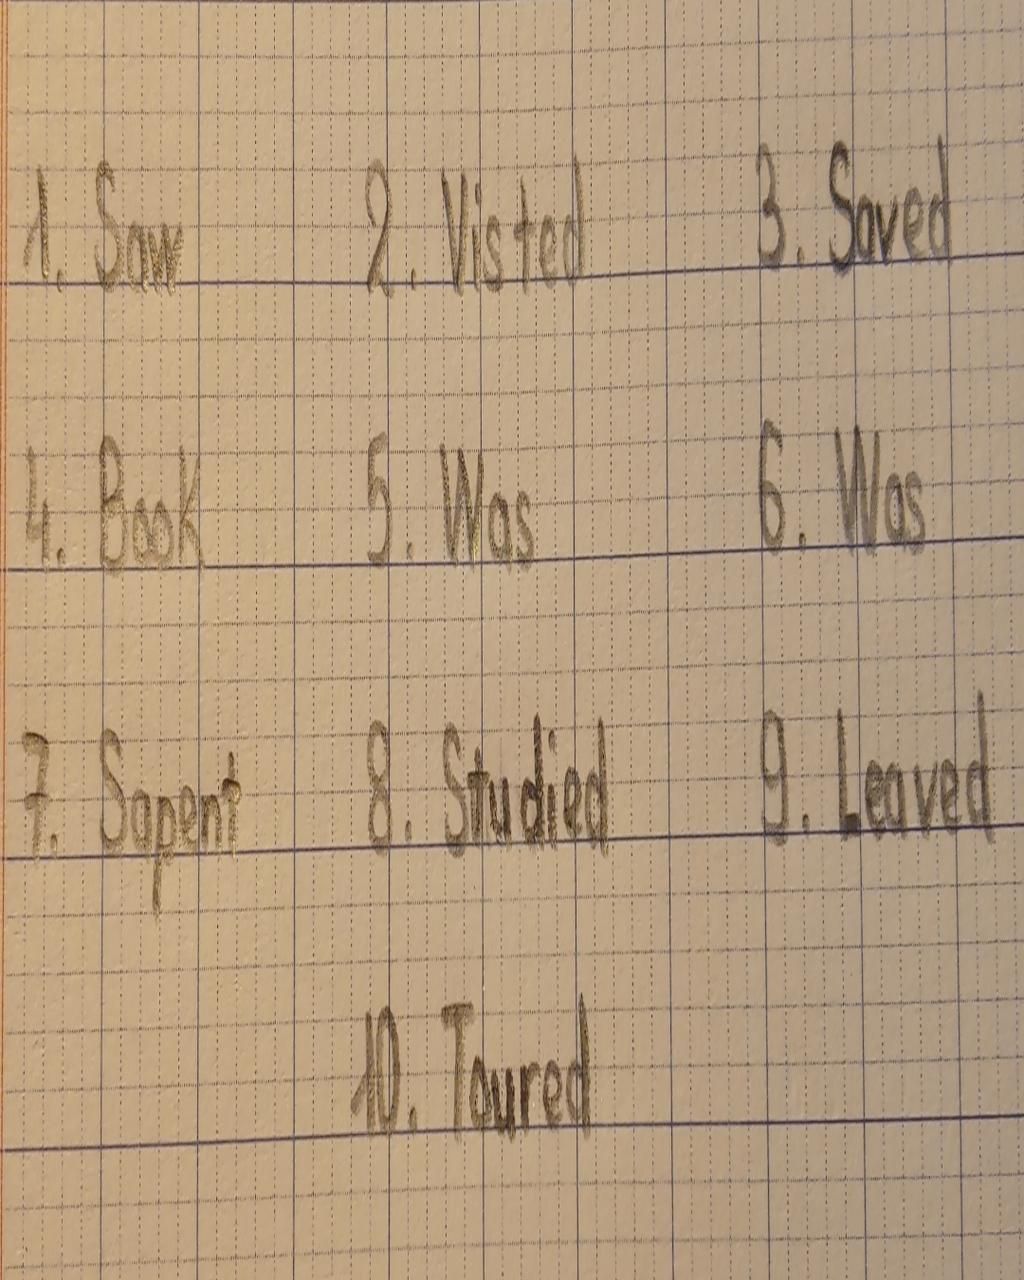 1. Saw 2. Visted 3. Saved
4. Book 5. Was 6. Was
7. Sapent 8. Studied 9. Leaved
10. Toured